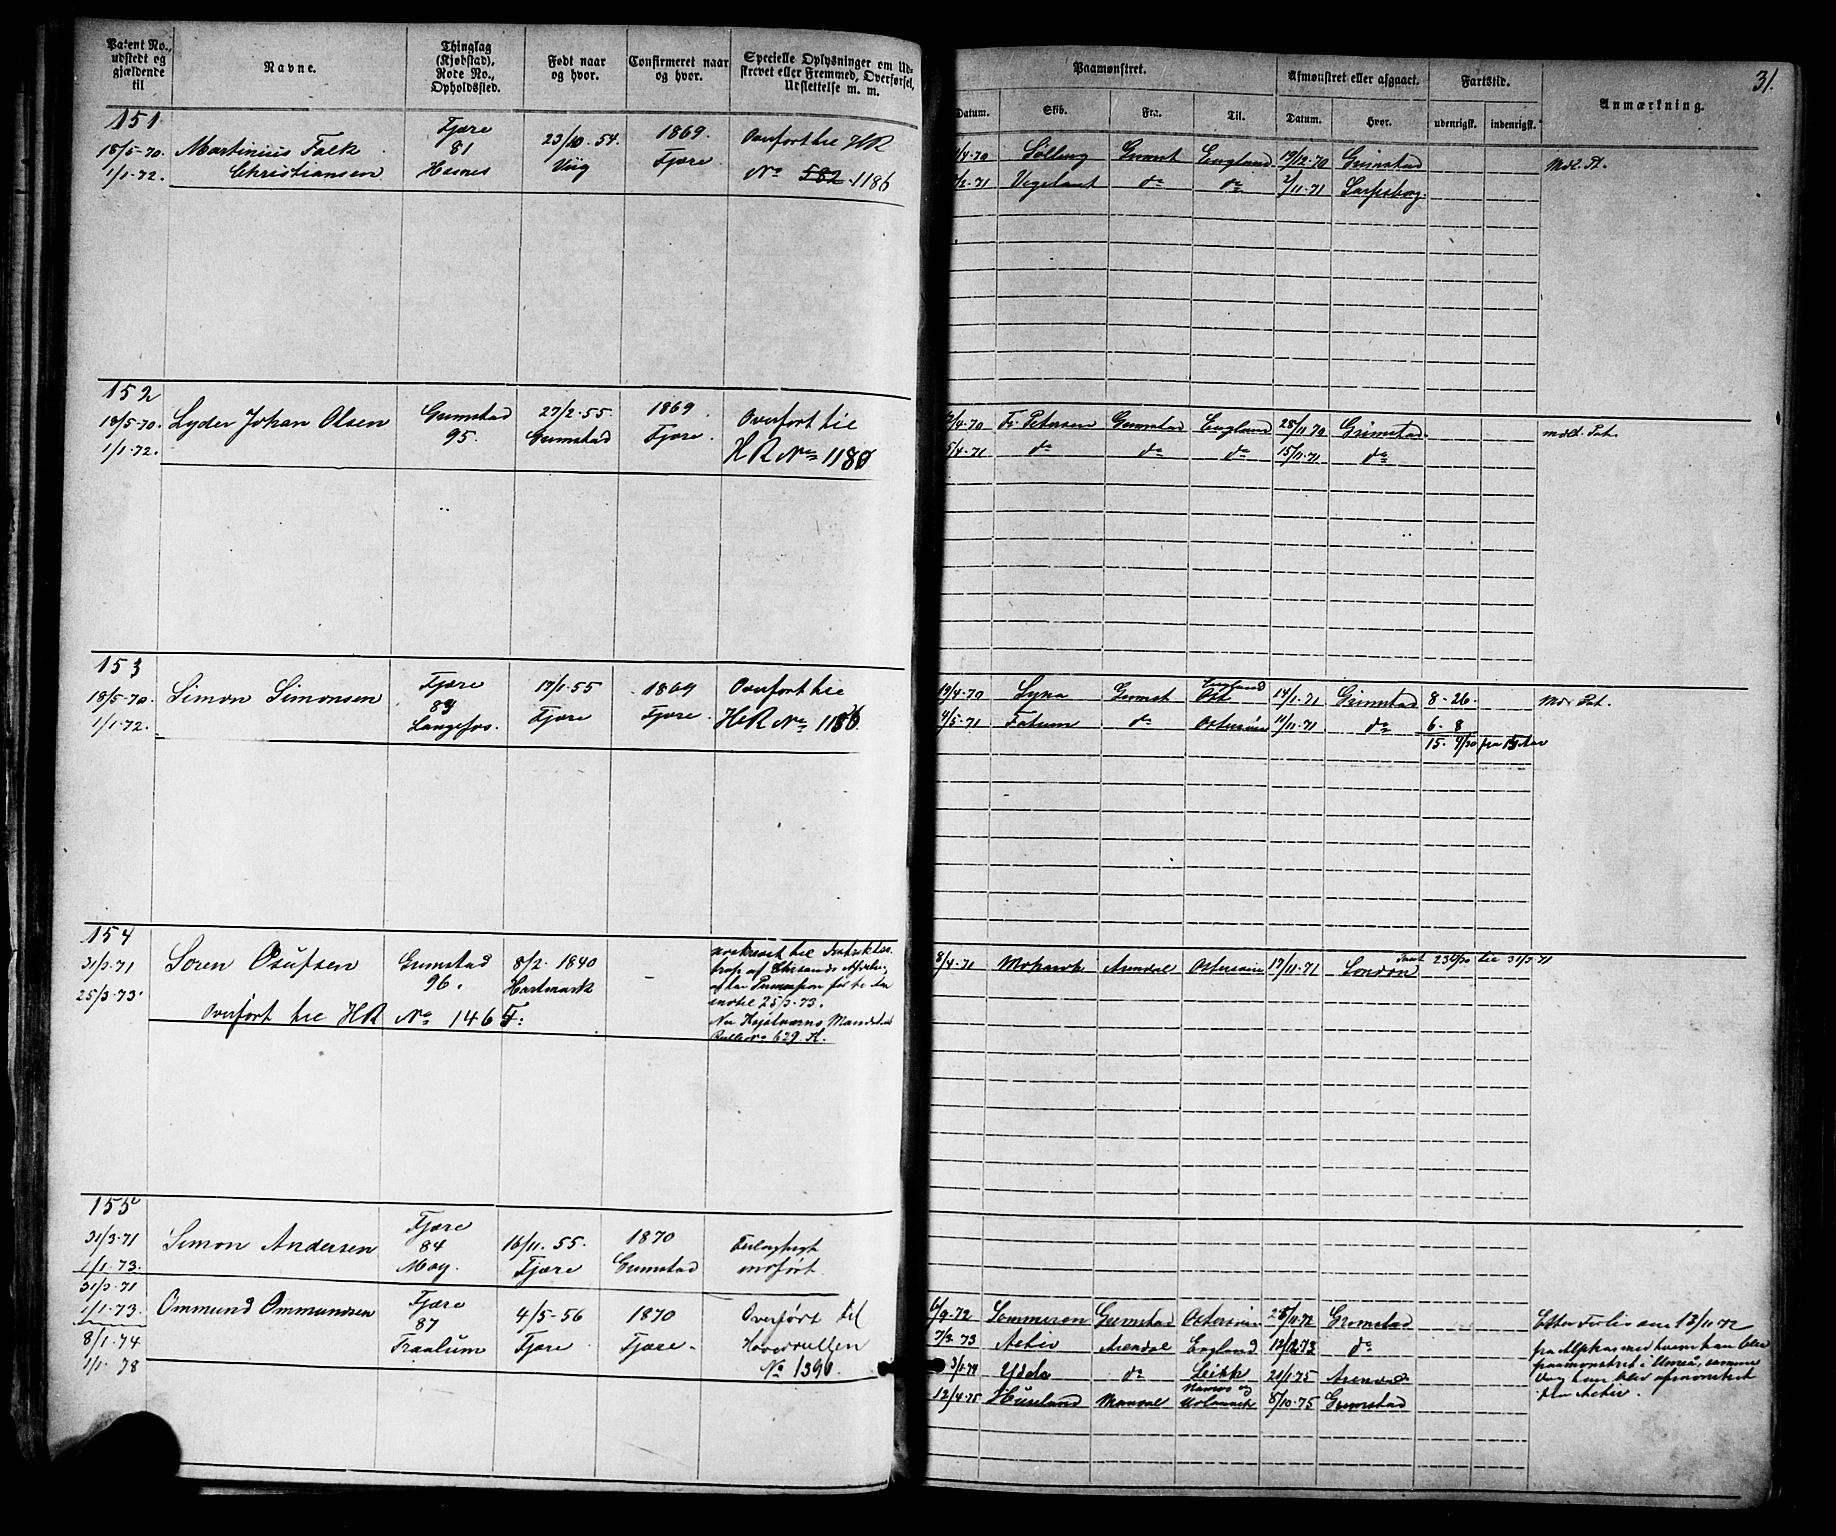 Patent No., udstedt og gjældende til
Navne.
Thinglag (Kjøbstad), Rode No., Opholdssted.
Født naar og hvor.
Confirmeret naar og hvor.
Specielle Oplysninger om Udskrevet eller Fremmed, Overførsel, Udslettelse m. m.
Paamønstret.
Afmønstret eller afgaaet.
Fartstid.
Anmærkning.
31.
Datum.
Skib.
Fra.
Til.
Datum.
Hvor.
udenrigsk.
indenrigsk.
151
18/5-70.
1/1-72.
Martinius Falk
Christiansen
Fjære
81
Hesnes
23/10-54.
Viig
1869.
Fjære
Overført til HR
No 582 1186
/4-70 Sölling Grimst England 19/12-70 Grimstad
/2-71 do do 2/11-71 Sarpsborg.
152
18/5-70.
1/1-72.
Lyder Johan Olsen
Grimstad
95.
27/2-55.
Grimstad
1869
Fjære
Overført til
HR No 1180
/4-70 Fr. Petersen Grimstad England 28/11-70 Grimstad
5/4-71 do do do 15/11-71 do
153
18/5-70.
1/1-72.
Simon Simonsen
Fjære
Langefos.
17/1-55
Fjære
1869
Fjære
Overført til
HR No 1186
19/4-70 Syna Grimst England Ost 14/1-71 Grimstad 8-26.
4/5-71 Fatum do Østersöen 11/11-71 do 6-8
15. 4/30
154
31/3-71
25/3-73.
Sören Osufsen
Grimstad
96.
8/2-1840
Hartmark
-
indtil 25/3-73.
No 629
Overført til HR No 1465
8/4-71 Mohawk Arendal Østersöen 17/11-71 London til 31/3-71
155
31/3-71
1/1-73.
Simon Andersen
Fjære
84
Moy.
16/11-55.
Fjære
1870
Grimstad
Feilagtigt
indført
31/3-71
1/1-73.
8/1-74
1/1-78
Ommund Ommundsen
Fjære
87
Traalum
4/5-56
Fjære
1870
Fjære.
Overført til
Hovedrullen
No 1396
6/9-72 Sommeren Grimstad Østersöen 25/11-72 Grimstad
7/3-73 Activ Arendal England 12/12-73 do
3/1-74 Ydda do Leith 21/1-75 Arendal
12/4-75 Huseland Mandal 8/10-75 Grimstad
Efter Forlis den 13/11-72
fra Alpha med hvem han blev
paamönstret i Umeå, samme
Dag han blev afmönstret
den Activ.